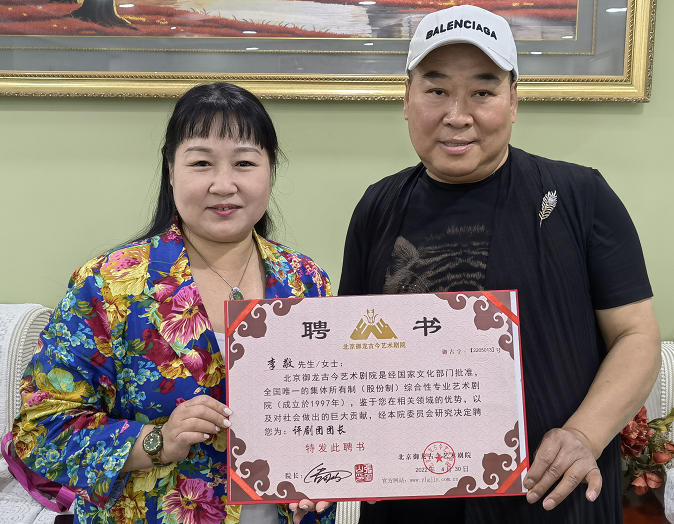 BALENCIAGA
聘 书
北京御龙古今艺术剧院
御古字:【2205013】号
李敬先生/女士:
北京御龙古今艺术剧院是经国家文化部门批准,
全国唯一的集体所有制(股份制)综合性专业艺术剧
院(成立於1997年),鉴于您在相关领域的优势,以
及对社会做出的巨大贡献,经本院委员会研究决定聘
您为:评剧团团长
特发此聘书
北京御龙古今艺术剧院
2022年4月30日
院长:
官方网站:www.ylgjjy.com.cn